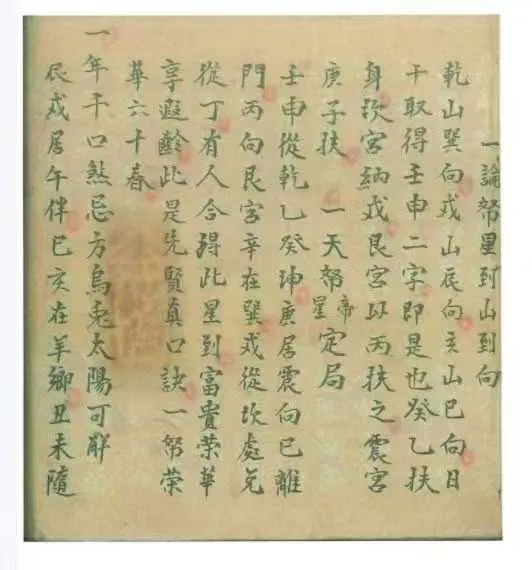 一論帑星到山到向
乾山巽向戌山辰向亥山巳向日
干取得壬申二字即是也癸乙扶
身坎宮納戊艮宮以丙扶之震宮
庚子扶　一天帑星帝定局
壬申從乾乙癸坤庚居震向巳離
門丙向艮宮辛在巽戎從坎處兌
從丁有人合得此星到富貴榮華
享遐齡此是先賢真口訣一帑榮
華六十春
一年干口煞忌方烏兎太陽可觧
辰戎居午伴巳亥在羊鄉丑未隨